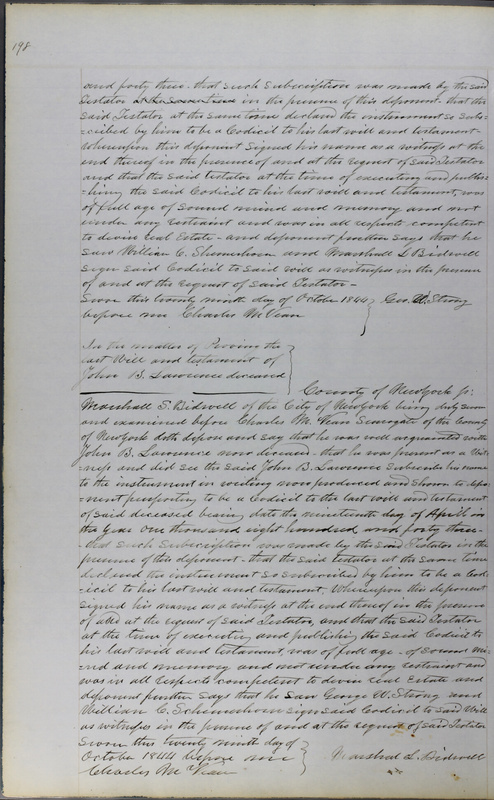 198
and forty three - that such subscription was made by the said
Testator at the same time in the presence of this deponent - that the
said Testator at the same time declared the instrument so subs=
=cribed by him to be a Codicil to his last will and testament -
whereupon this deponent signed his name as a witness at the
end thereof in the presence of and at the request of said Testator
and that the said testator at the time of executing and publis=
=hing the said Codicil to his last will and testament, was
of full age of sound mind and memory and not
under any restraint and was in all respects competent
to devise real Estate - and deponent further says that he
saw William C. Schermerhorn and Marshall S Bidwell
sign said Codicil to said will as witnesses in the presence
of and at the request of said Testator -
Sworn this twenty ninth day of October 1844 } Geo. W. Strong
before me Charles McVean
In the matter of Proving the
last Will and testament of
John B. Lawrence deceased
County of New York ss:
Marshall S. Bidwell of the City of New York being duly sworn
and examined before Charles McVean Surrogate of the County
of New York doth depose and say that he was well acquainted with
John B. Lawrence now deceased - that he was present as a Wit=
=ness and did see the said John B. Lawrence Subscribe his name
to the instrument in writing now produced and shown to depo=
=nent purporting to be a Codicil to the last will and testament
of said deceased bearing date the nineteenth day of April in
the Year One thousand eight hundred and forty three -
- that such subscription was made by the said Testator in the
presence of this deponent - that the said testator at the same time
declared the instrument so subscribed by him to be a Cod=
=icil to his last will and testament. Whereupon this deponent
signed his name as a witness at the end thereof in the presence
of and at the request of said Testator, and that the said Testator
at the time of executing and publishing the said Codicil to
his last will and testament, was of full age - of sound mi=
=nd and memory and not under any restraint and
was in all respects competent to devise real Estate and
deponent further says that he saw George W. Strong and
William C. Schermerhorn sign said Codicil to said Will
as witnesses in the presence of and at the request of said Testator
Sworn this twenty ninth day of
October 1844 before me } Marshall S. Bidwell
Charles McVean